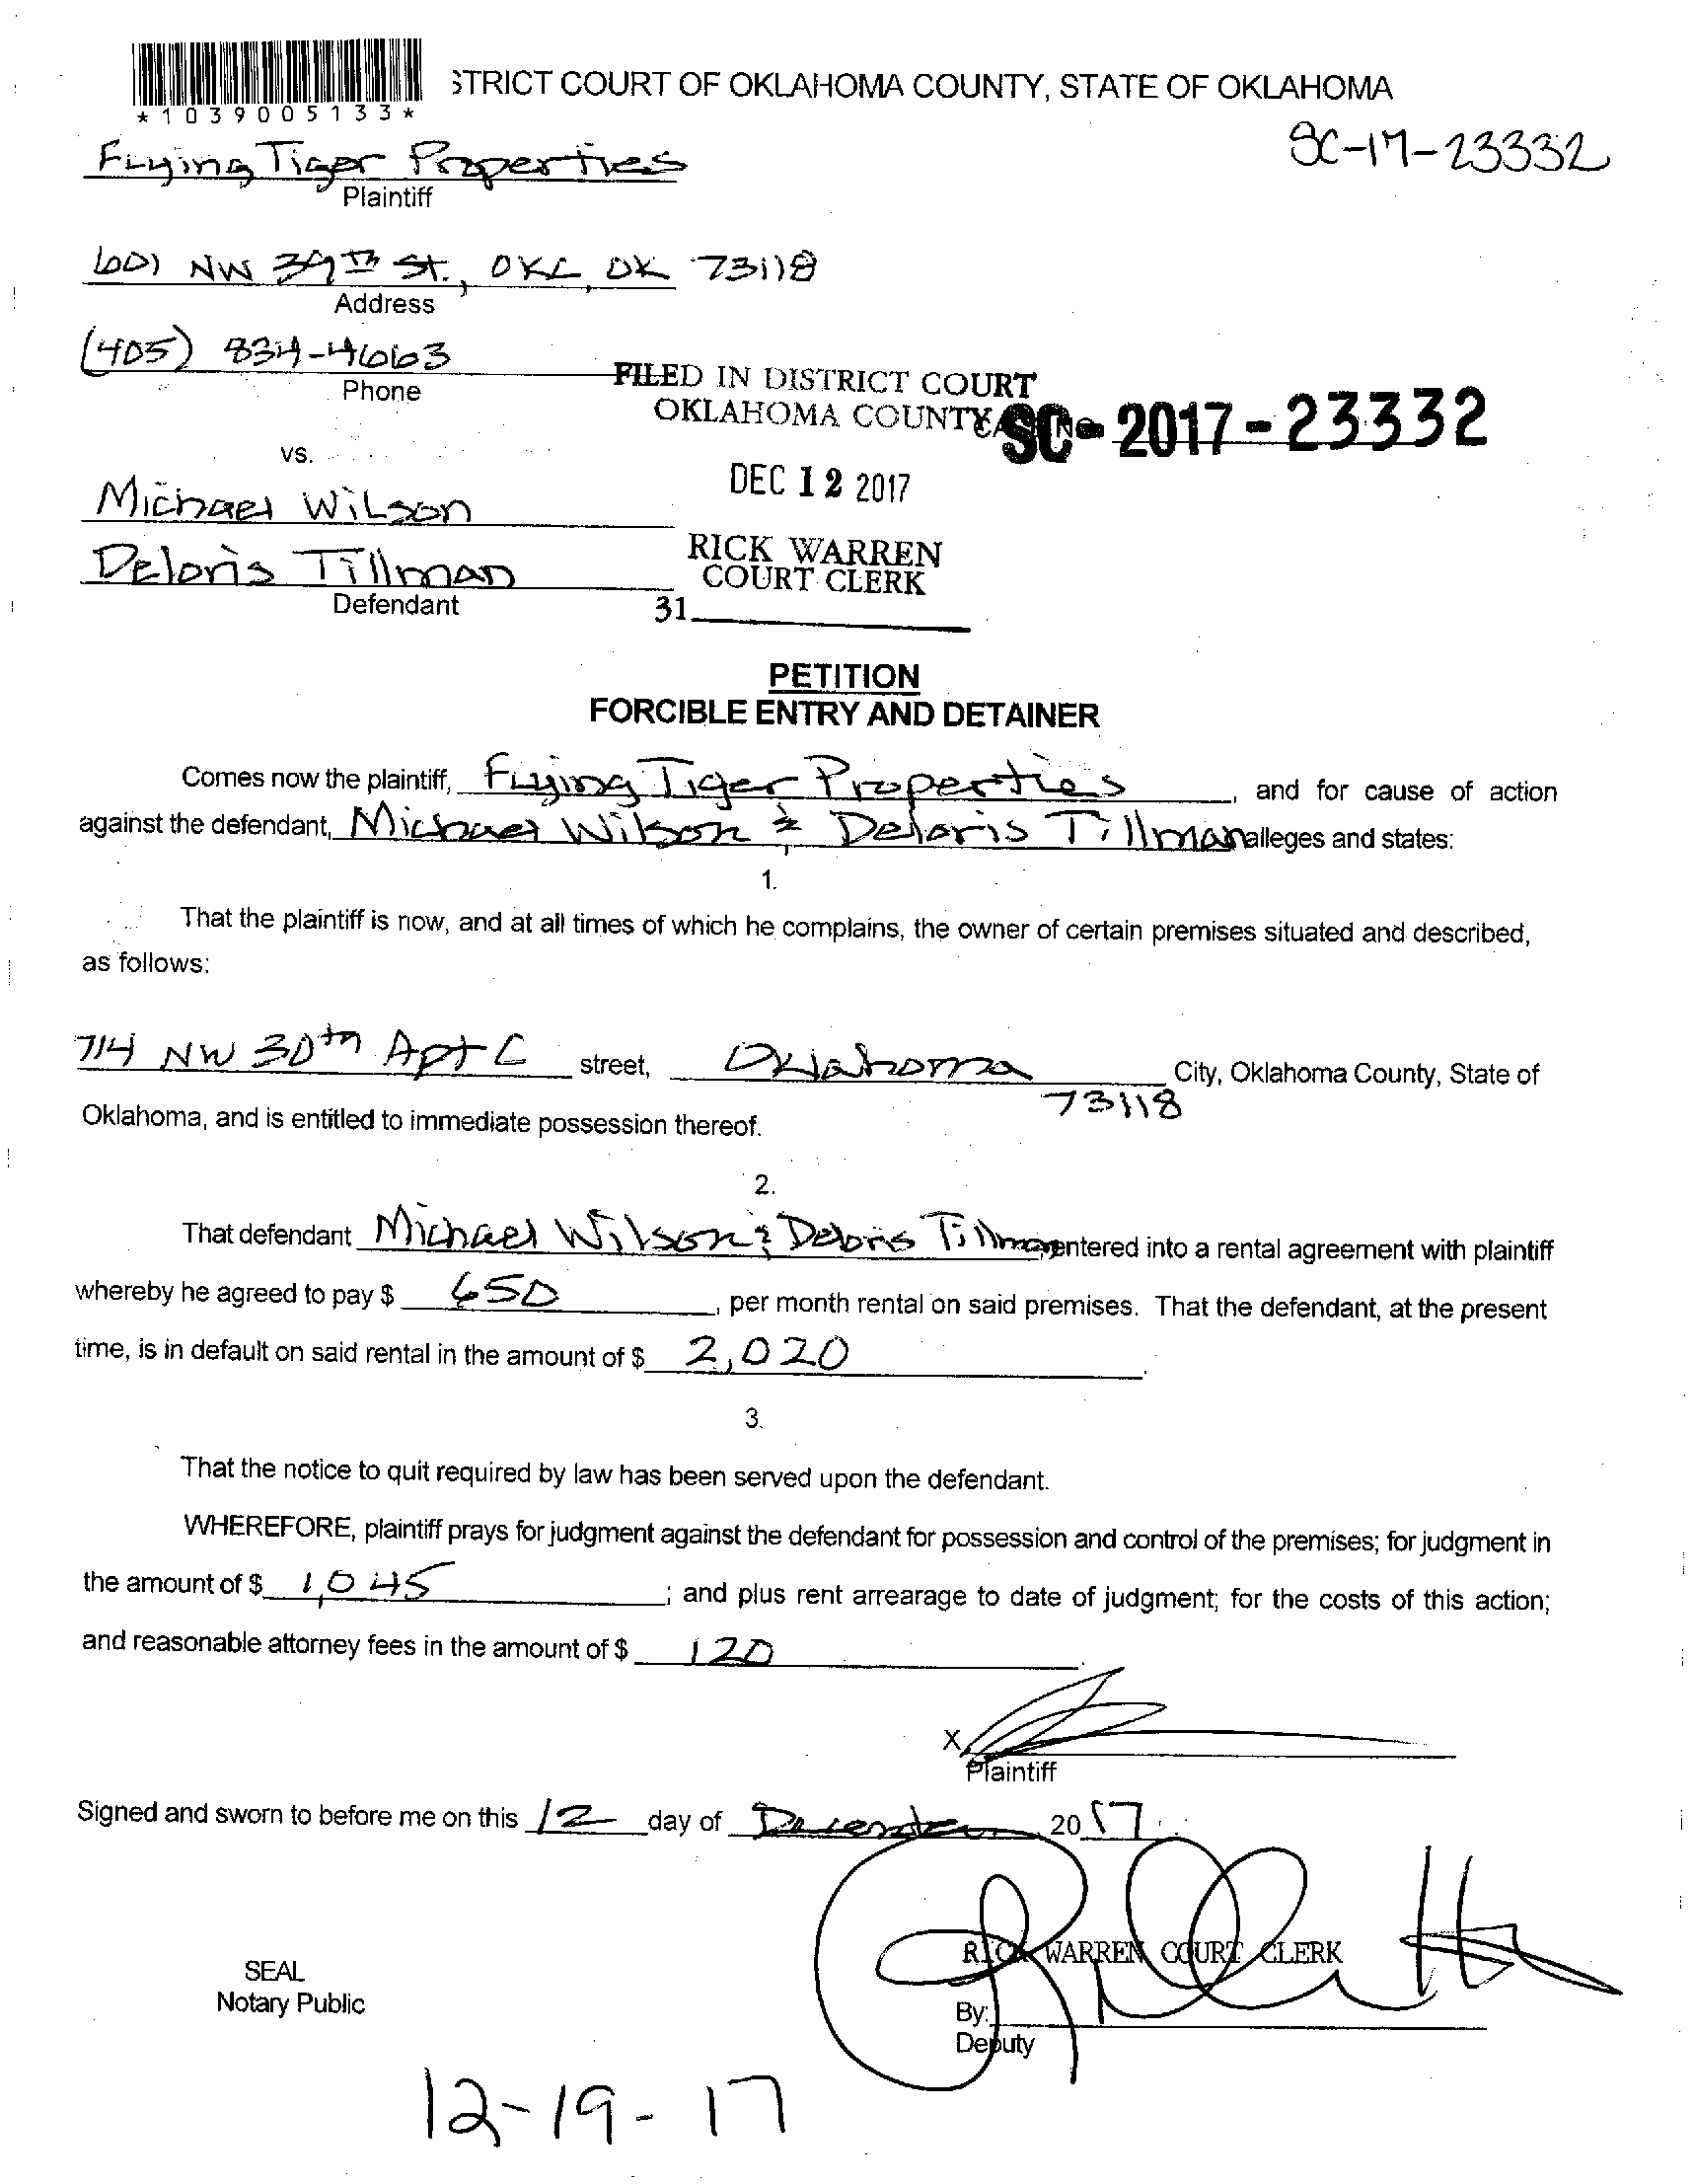 STRICT COURT OF OKLAHOMA COUNTY, STATE OF OKLAHOMA
*1039005133*
SC-17-23332
Flying Tiger Properties
Plaintiff
601 NW 39th St., OKC, OK 73118
Address
(405) 834-4663
Phone
FILED IN DISTRICT COURT
OKLAHOMA COUNTY
SC-2017-23332
vs.
DEC 12 2017
Michael Wilson
RICK WARREN
COURT CLERK
Deloris Tillman
Defendant
31
PETITION
FORCIBLE ENTRY AND DETAINER
Comes now the plaintiff, Flying Tiger Properties, and for cause of action
against the defendant, Michael Wilson & Deloris Tillman alleges and states:
1.
That the plaintiff is now, and at all times of which he complains, the owner of certain premises situated and described,
as follows:
714 NW 30th Apt C street, Oklahoma City, Oklahoma County, State of
73118
Oklahoma, and is entitled to immediate possession thereof.
2.
That defendant Michael Wilson & Deloris Tillman entered into a rental agreement with plaintiff
whereby he agreed to pay $ 650, per month rental on said premises. That the defendant, at the present
time, is in default on said rental in the amount of $ 2,020.
3.
That the notice to quit required by law has been served upon the defendant.
WHEREFORE, plaintiff prays for judgment against the defendant for possession and control of the premises; for judgment in
the amount of $ 1,045; and plus rent arrearage to date of judgment; for the costs of this action;
and reasonable attorney fees in the amount of $ 120.
X
Plaintiff
Signed and sworn to before me on this 12 day of December 2017
RICK WARREN COURT CLERK
SEAL
Notary Public
By:
Deputy
12-19-17